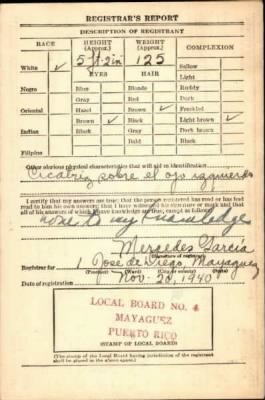 REGISTRAR'S REPORT
DESCRIPTION OF REGISTRANT
RACE
HEIGHT (Approx.)
WEIGHT (Approx.)
COMPLEXION
White ✓
5 ft-2 in
125
Sallow
EYES
HAIR
Light
Negro
Blue
Blonde
Ruddy
Gray
Red
Dark
Oriental
Hazel
Brown ✓
Freckled
Brown ✓
Black
Light brown ✓
Indian
Black
Gray
Dark brown
Bald
Black
Filipino
Other obvious physical characteristics that will aid in identification
Cicatriz sobre el ojo izquierdo
I certify that my answers are true; that the person registered has read or has had
read to him his own answers; that I have witnessed his signature or mark and that
all of his answers of which I have knowledge are true, except as follows:
none to my knowledge
Mercedes Garcia
(Signature of registrar)
Registrar for 1 José de Diego, Mayaguez
(Precinct) (Ward) (City or county) (State)
Date of registration Nov. 20, 1940
LOCAL BOARD NO. 4
MAYAGUEZ
PUERTO RICO
(STAMP OF LOCAL BOARD)
(The stamp of the Local Board having jurisdiction of the registrant
shall be placed in the above space.)